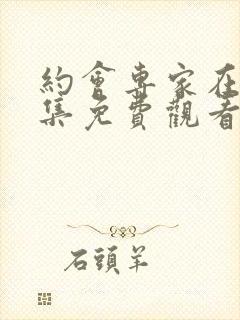 約會專家在
集免費觀看
石頭羊